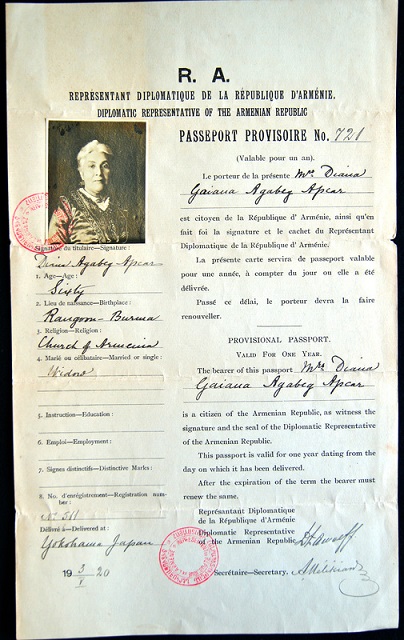 R. A.
REPRÉSENTANT DIPLOMATIQUE DE LA RÉPUBLIQUE D'ARMÉNIE.
DIPLOMATIC REPRESENTATIVE OF THE ARMENIAN REPUBLIC
PASSEPORT PROVISOIRE No. 721
(Valable pour un an).
Le porteur de la présente Mrs Diana
Gaiana Agabeg Apcar
est citoyen de la République d' Arménie, ainsi qu'en
fait foi la signature et le cachet du Représentant
Diplomatique de la République d' Arménie.
La présente carte servira de passeport valable
pour une année, à compter du jour on elle a été
délivrée.
Passé ce délai, le porteur devra la faire
renouveller.
PROVISIONAL PASSPORT.
VALID FOR ONE YEAR.
The bearer of this passport Mrs Diana
Gaiana Agabeg Apcar
is a citizen of the Armenian Republic, as witness the
signature and the seal of the Diplomatic Representative
of the Armenian Republic.
This passport is valid for one year dating from the
day on which it has been delivered.
After the expiration of the term the bearer must
renew the same.
Représantant Diplomatique
de la République d'Arménie
Diplomatic Representative
of the Armenian Republic
Secrétaire—Secretary.
Signature du titulaire—Signature:
Diana Agabeg Apcar
1. Age—Age:
Sixty
2. Lieu de naissance—Birthplace:
Rangoon-Burma
3. Religion—Religion:
Church of Armenia
4. Marié ou célibataire—Married or single:
Widow
5. Instruction—Education:
6. Emploi—Employment:
7. Signes distinctifs—Distinctive Marks:
8. No. d'enrégistrement—Registration num-
ber:
Délivré à—Delivered at:
Yokohama Japan
19 3/V 20